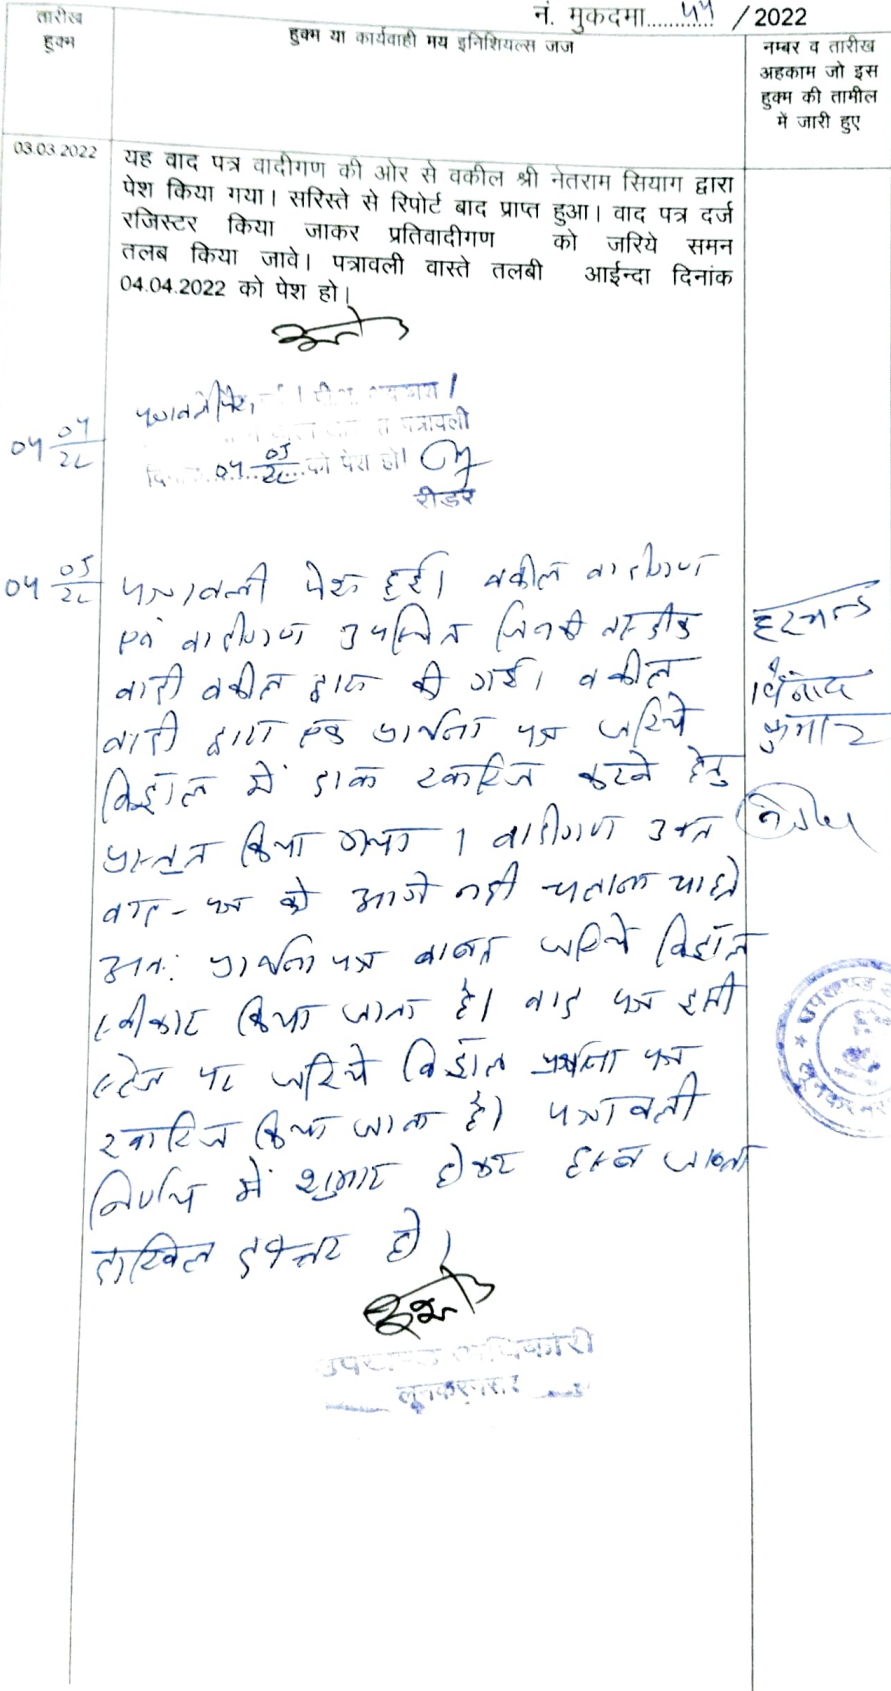 नं. मुकदमा............ / 2022
तारीख
हुक्म
हुक्म या कार्यवाही मय इनिशियल्स जज
नम्बर व तारीख
अहकाम जो इस
हुक्म की तामील
में जारी हुए
03.03.2022
यह वाद पत्र वादीगण की ओर से वकील श्री नेतराम सियाग द्वारा
पेश किया गया। सरिस्ते से रिपोर्ट बाद प्राप्त हुआ। वाद पत्र दर्ज
रजिस्टर किया जाकर प्रतिवादीगण को जरिये समन
तलब किया जावे। पत्रावली वास्ते तलबी आईन्दा दिनांक
04.04.2022 को पेश हो।
04 04/22
पत्रावली पेश
पत्रावली
04 05/22 को पेश हो।
रीडर
04 05/22
पत्रावली पेश हुई। वकील वादीगण
एवं वादीगण उपस्थित जिनकी तस्दीक
वादी वकील द्वारा की गई। वकील
वादी द्वारा एक प्रार्थना पत्र जरिये
विड्रॉल में वाद खारिज करने हेतु
प्रस्तुत किया गया। वादीगण उक्त
वाद-पत्र को आगे नहीं चलाना चाहते
अतः प्रार्थना पत्र बाबत जरिये विड्रॉल
स्वीकार किया जाता है। वाद पत्र इसी
स्टेज पर जरिये विड्रॉल प्रार्थना पत्र
खारिज किया जाता है। पत्रावली
निर्णय में शुमार होकर दाखिल
दफ्तर हो।
हरचन्द
विनोद
कुमार
उपखण्ड अधिकारी
लूनकरनसर